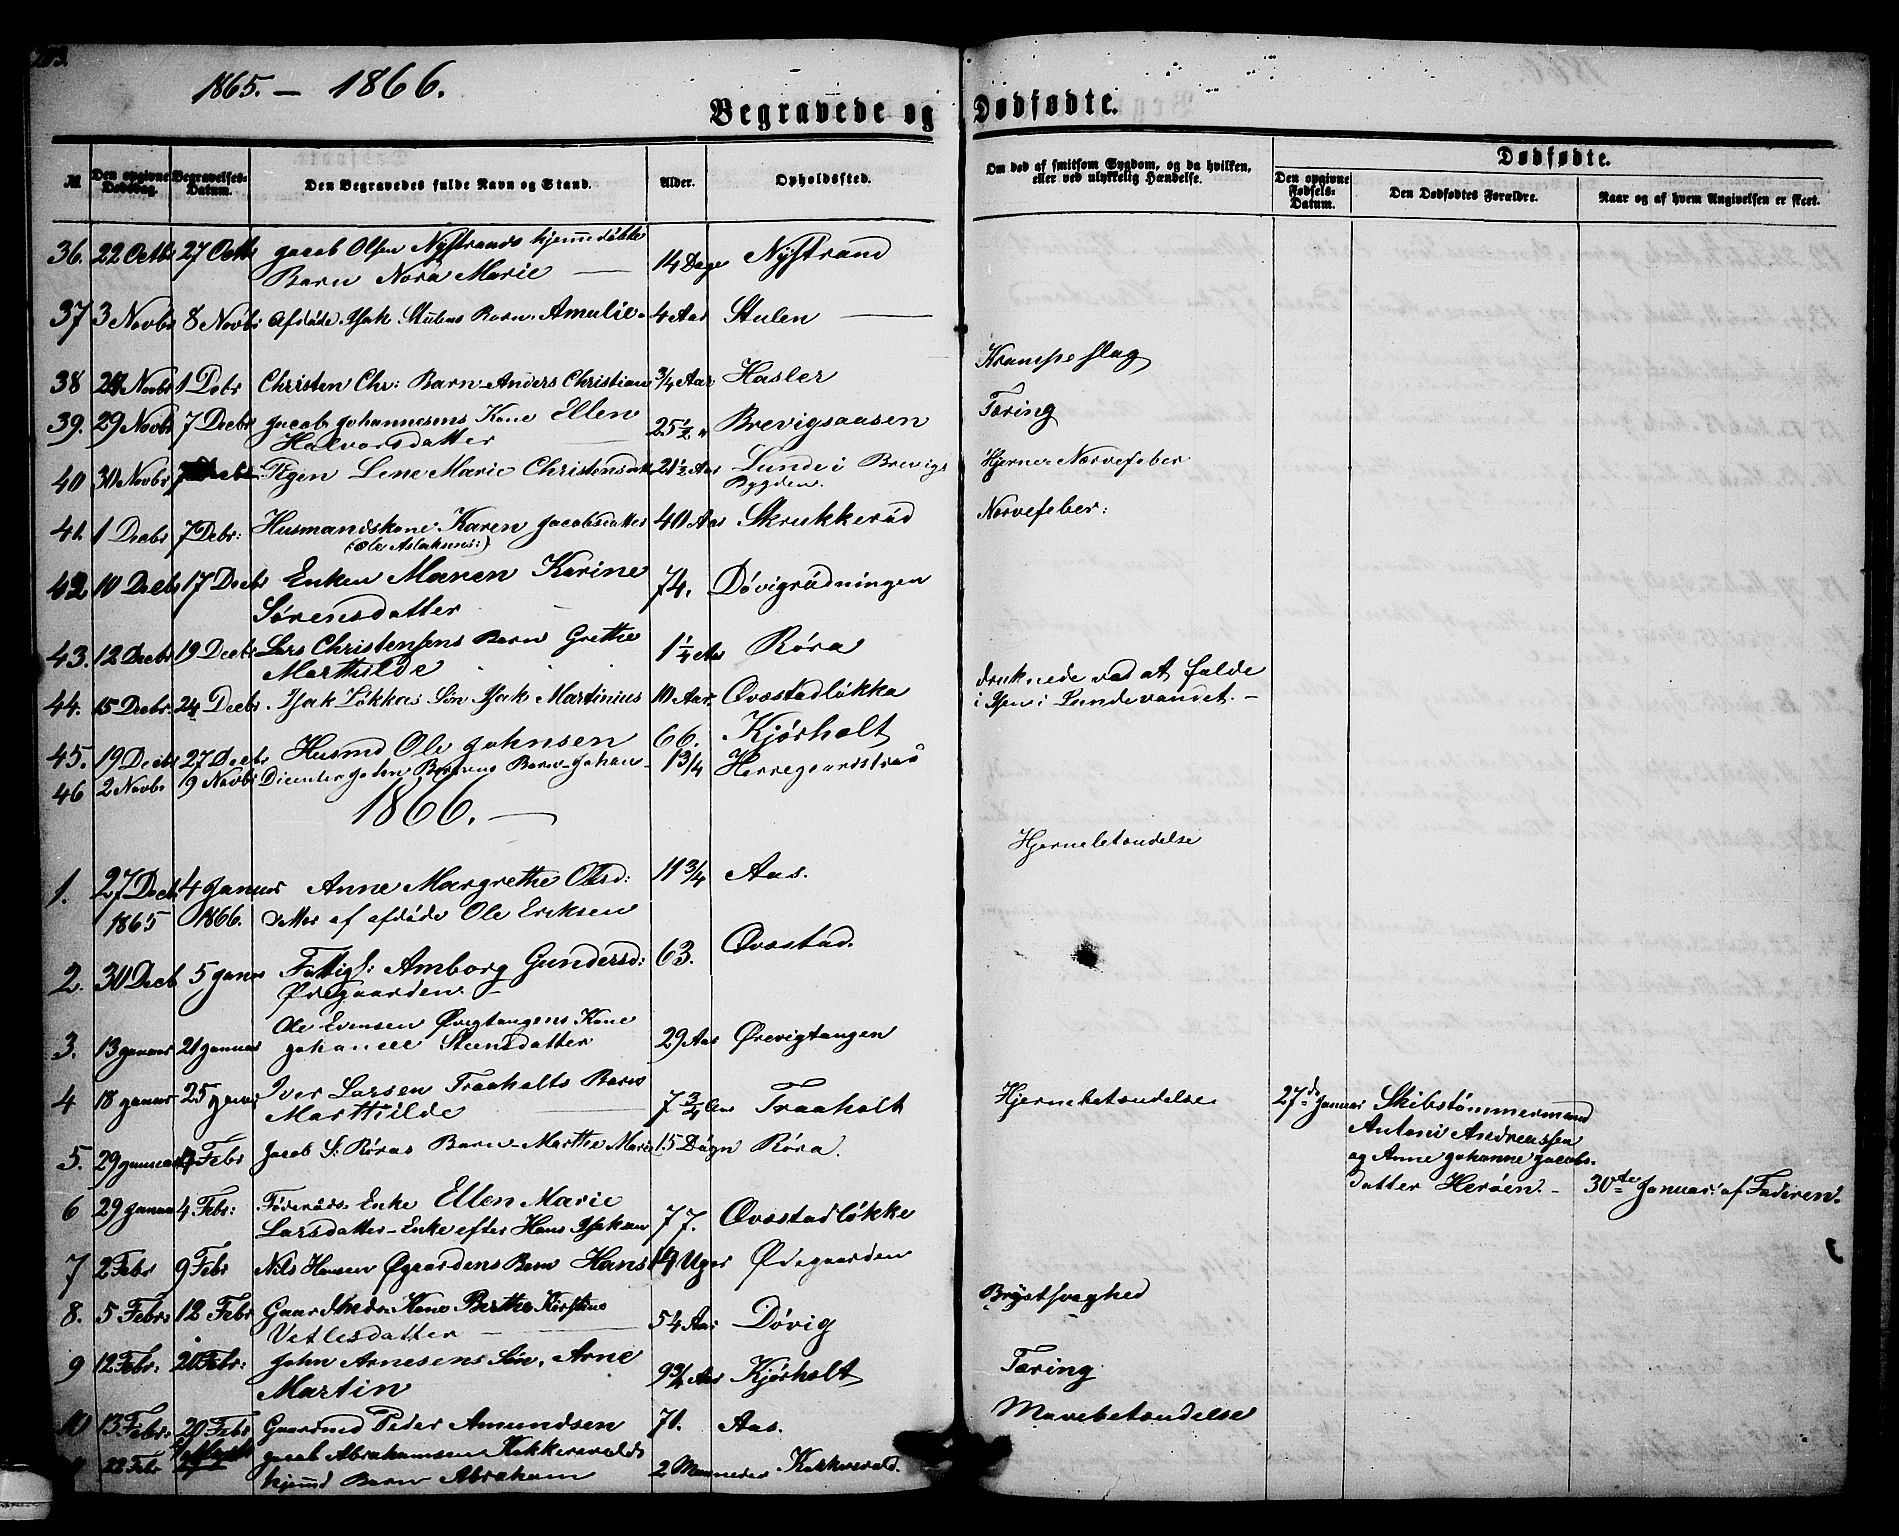 1865. — 1866.
Begravede og Dødfødte.
№
Den opgivne Dødsdag.
Begravelses-Datum.
Den Begravedes fulde Navn og Stand.
Alder.
Opholdssted.
Om død af smitsom Sygdom, og da hvilken, eller ved ulykkelig Hændelse.
Dødfødte.
Den opgivne Fødsels-Datum.
Den Dødfødtes Forældre.
Naar og af hvem Angivelsen er skeet.
36. 22 Octb 27 Octb Jacob Olsen Nystrands hjemmedøbte 14 Dage Nystrand
Barn Nora Marie —
37 3 Novbr 8 Novbr Afdøde Isak Stulens Barn Amalie. 4 Aar Stulen —
38 Novbr 1 Debr Christen Chr: Barn Anders Christian 3/4 Aar Hasler Krampeslag
39. 29 Novbr 7 Decbr Jacob Johannesens Kone Ellen 25 1/2 " Brevigsaasen Tæring
Halvorsdatter
40 30 Novbr 7 Decbr Pigen Lene Marie Christensdatt 21 1/2 Aar Lunde i Brevigs Hjerne Nervefeber
Bygden.
41. 1 Decbr 7 Debr: Husmandskone Karen Jacobsdatter 40 Aar Skrukkerød Nervefeber:
(Ole Aslaksens:)
42 10 Decbr 17 Decbr Enken Maren Karine 74. Døvigrødningen
Sørensdatter
43. 12 Decbr 19 Decbr Lars Christensens Barn Grethe 1 1/4 Aar Røra
Marthilde
44. 15 Decbr. 24 Decbr. Isak Løkkas Søn Isak Martinius 10 Aar. Ovæstadløkka druknede ved at falde
i Isen i Lundevandet. —
45. 19 Decbr 27 Decbr Husmd Ole Johnsen 66. Kjørholt
46 2 Novbr 9 Novbr Barn Johan 1 3/4 Herregaardsstraa
1866. —
1. 27 Decb 4 Januar Anne Margrethe Olsd: 11 3/4 Aas. Hjernebetændelse
1865 1866. Datter af afdøde Ole Eriksen
2. 30 Decb 5 Janur Fattigl: Amborg Gundersd: 63. Ovæstad.
Ødegaarden
3. 13 Januar 21 Januar Ole Evensen Øvigtangens Kone 29 Aar Ørevigtangen
Johanne Steensdatter
4 18 Januar 25 Januar Iver Larsen Traaholts Barn 7 3/4 Aar Traaholt Hjernebetændelse
Marthilde —
27de Januar Skibstømmermand
Antoni Andreassen
og Anne Johanne Jacobs-
datter Herøen. — 30te Januar: af Faderen.
5. 29 Januar Febr Jacob S: Røras Barn Marthe Marie 15 Døgn Røra.
6 29 Januar 4 Febr: Føderaads Enke Ellen Marie 77. Ovæstadløkke
Larsdatter — Enke efter Hans Isaksen
7 2 Febr 9 Febr Nils Hansen Øgaardens Barn Hans Uger Ødegaarden
8. 5 Febr: 12 Febr Gaardmds: Kone Berthe Kirstine 54 Aar Døvig Brystsvaghed
Vetlesdatter —
9 12 Febr. 20 Febr: John Arnesens Søn, Arne 9 3/4 Aar Kjørholt Tæring
Martin
10 13 Febr. 20 Febr Gaardmd Peder Amundsen 71. Aas. Mavebetændelse
22 Febr Jacob Abrahamsen Kokkersvolds 2 Maaneder Kokkersvold.
hjemd Barn Abraham